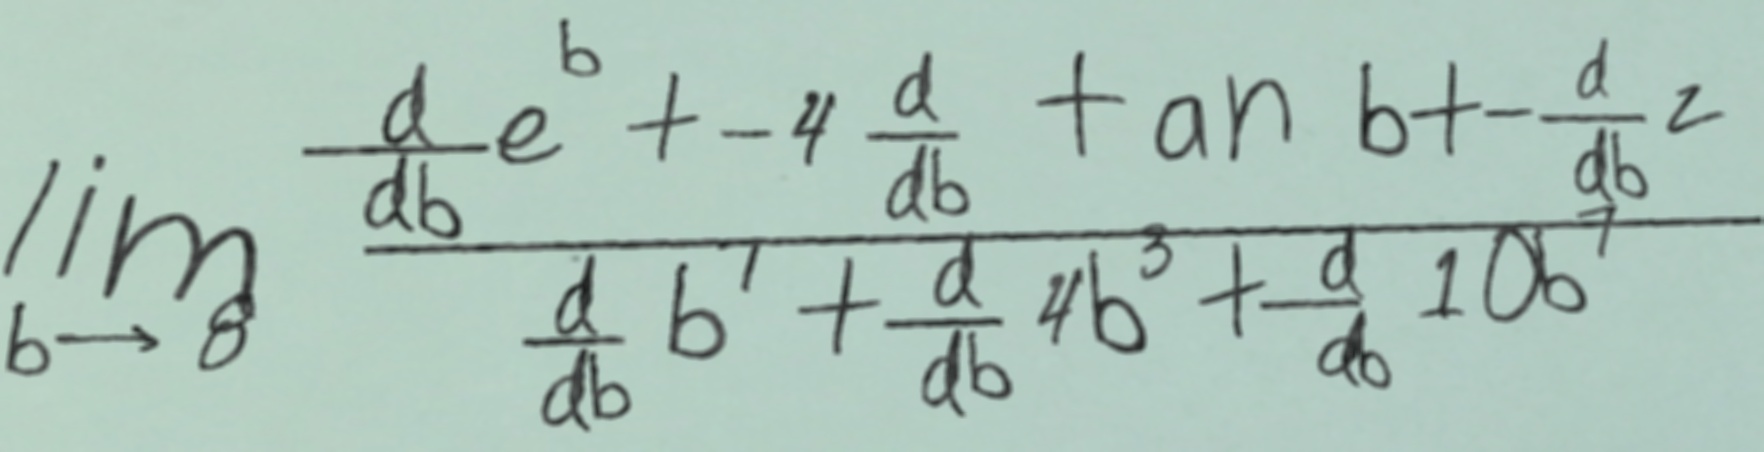 lim b→8 (d/db e^b + -4 d/db tan b + - d/db 2) / (d/db b^1 + d/db 4b^3 + d/db 10b^7)